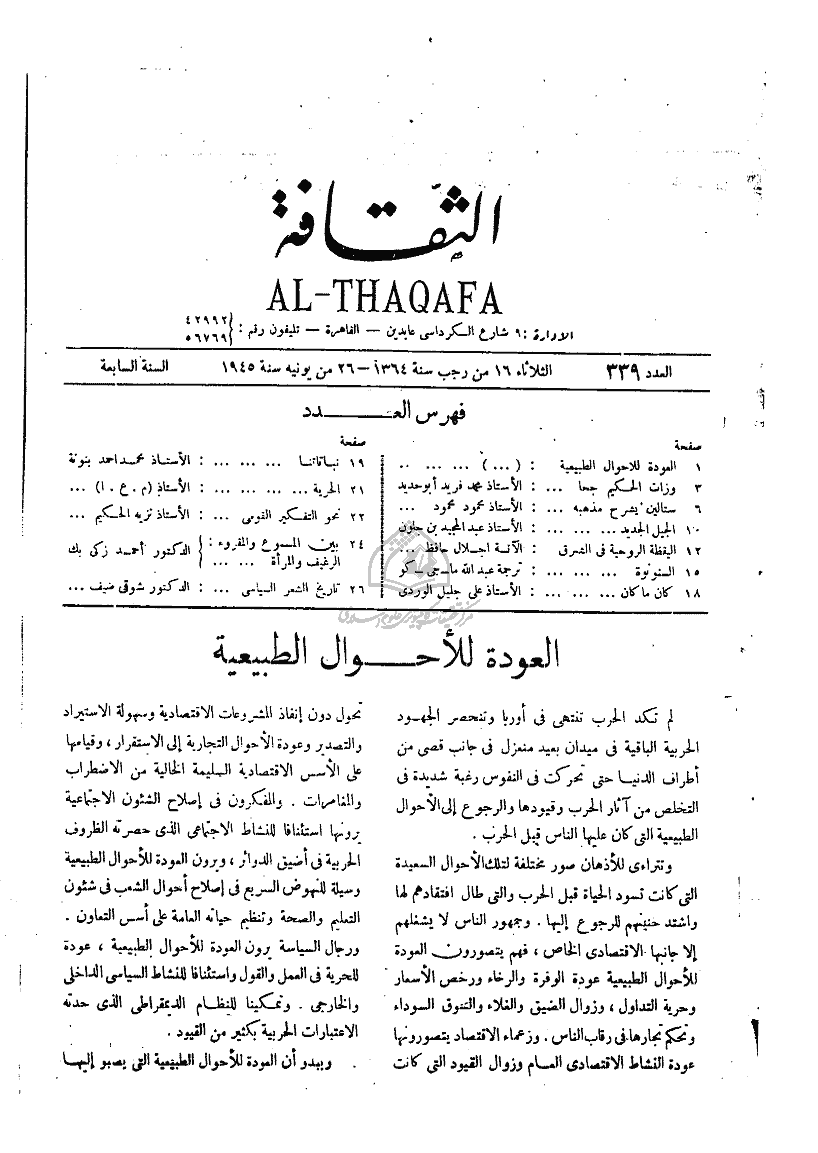 الثقافة
AL-THAQAFA
الادارة : ٩ شارع الكرداسى عابدين — القاهرة — تليفون رقم : { ٤٢٩٩٢ ٥٦٧٦٩
العدد ٣٣٩
الثلاثاء ١٦ من رجب سنة ١٣٦٤ — ٢٦ من يونيه سنة ١٩٤٥
السنة السابعة
فهرس العـــدد
صفحة
١ العودة للاحوال الطبيعية : ( ... ) ... ... ..
٣ وزات الحكيم جحا ... : الأستاذ محمد فريد أبو حديد
٦ ستالين يشرح مذهبه ... : الأستاذ محمود محمود ...
١٠ الجيل الجديد ... ... ... : الأستاذ عبد المجيد بن جلون
١٢ اليقظة الروحية فى الشرق : الآنسة اجلال حافظ ...
١٥ السنونوة ... ... ... : ترجمة عبد الله
١٨ كان ما كان ... ... ... : الأستاذ على جليل الوردى
صفحة
١٩ نباتاتنا ... ... ... : الأستاذ محمد احمد بنونة
٢١ الحرية ... ... ... ... : الأستاذ (م . ع . ا) ...
٢٢ نحو التفكير القومى ... : الأستاذ نزيه الحكيم ...
٢٤ بين المسموع والمقروء : الرغيف والمرأة ... ... } الدكتور أحمد زكى بك
٢٦ تاريخ الشعر السياسى ... : الدكتور شوقى ضيف ...
العودة للأحـــوال الطبيعية
لم تكد الحرب تنتهى فى أوربا وتنحصر الجهود
الحربية الباقية فى ميدان بعيد منعزل فى جانب قصى من
أطراف الدنيا حتى تحركت فى النفوس رغبة شديدة فى
التخلص من آثار الحرب وقيودها والرجوع إلى الأحوال
الطبيعية التى كان عليها الناس قبل الحرب .
وتتراءى للأذهان صور مختلفة لتلك الأحوال السعيدة
التى كانت تسود الحياة قبل الحرب والتى طال افتقادهم لها
واشتد حنينهم للرجوع إليها . وجمهور الناس لا يشغلهم
إلا جانبها الاقتصادى الخاص ، فهم يتصورون العودة
للأحوال الطبيعية عودة الوفرة والرخاء ورخص الأسعار
وحرية التداول ، وزوال الضيق والغلاء والسوق السوداء
وتحكم تجارها فى رقاب الناس . وزعماء الاقتصاد يتصورونها
عودة النشاط الاقتصادى العام وزوال القيود التى كانت
تحول دون إنفاذ المشروعات الاقتصادية وسهولة الاستيراد
والتصدير وعودة الأحوال التجارية إلى الاستقرار ، وقيامها
على الأسس الاقتصادية السليمة الخالية من الاضطراب
والمغامرات . والمفكرون فى إصلاح الشئون الاجتماعية
يرونها استئنافا للنشاط الاجتماعى الذى حصرته الظروف
الحربية فى أضيق الدوائر ، ويرون العودة للأحوال الطبيعية
وسيلة للنهوض السريع فى إصلاح أحوال الشعب فى شئون
التعليم والصحة وتنظيم حياته العامة على أسس التعاون .
ورجال السياسة يرون العودة للأحوال الطبيعية ، عودة
للحرية فى العمل والقول واستئنافا للنشاط السياسى الداخلى
والخارجى . وتمكينا للنظام الديمقراطى الذى حدته
الاعتبارات الحربية بكثير من القيود .
ويبدو أن العودة للأحوال الطبيعية التى يصبو إليها